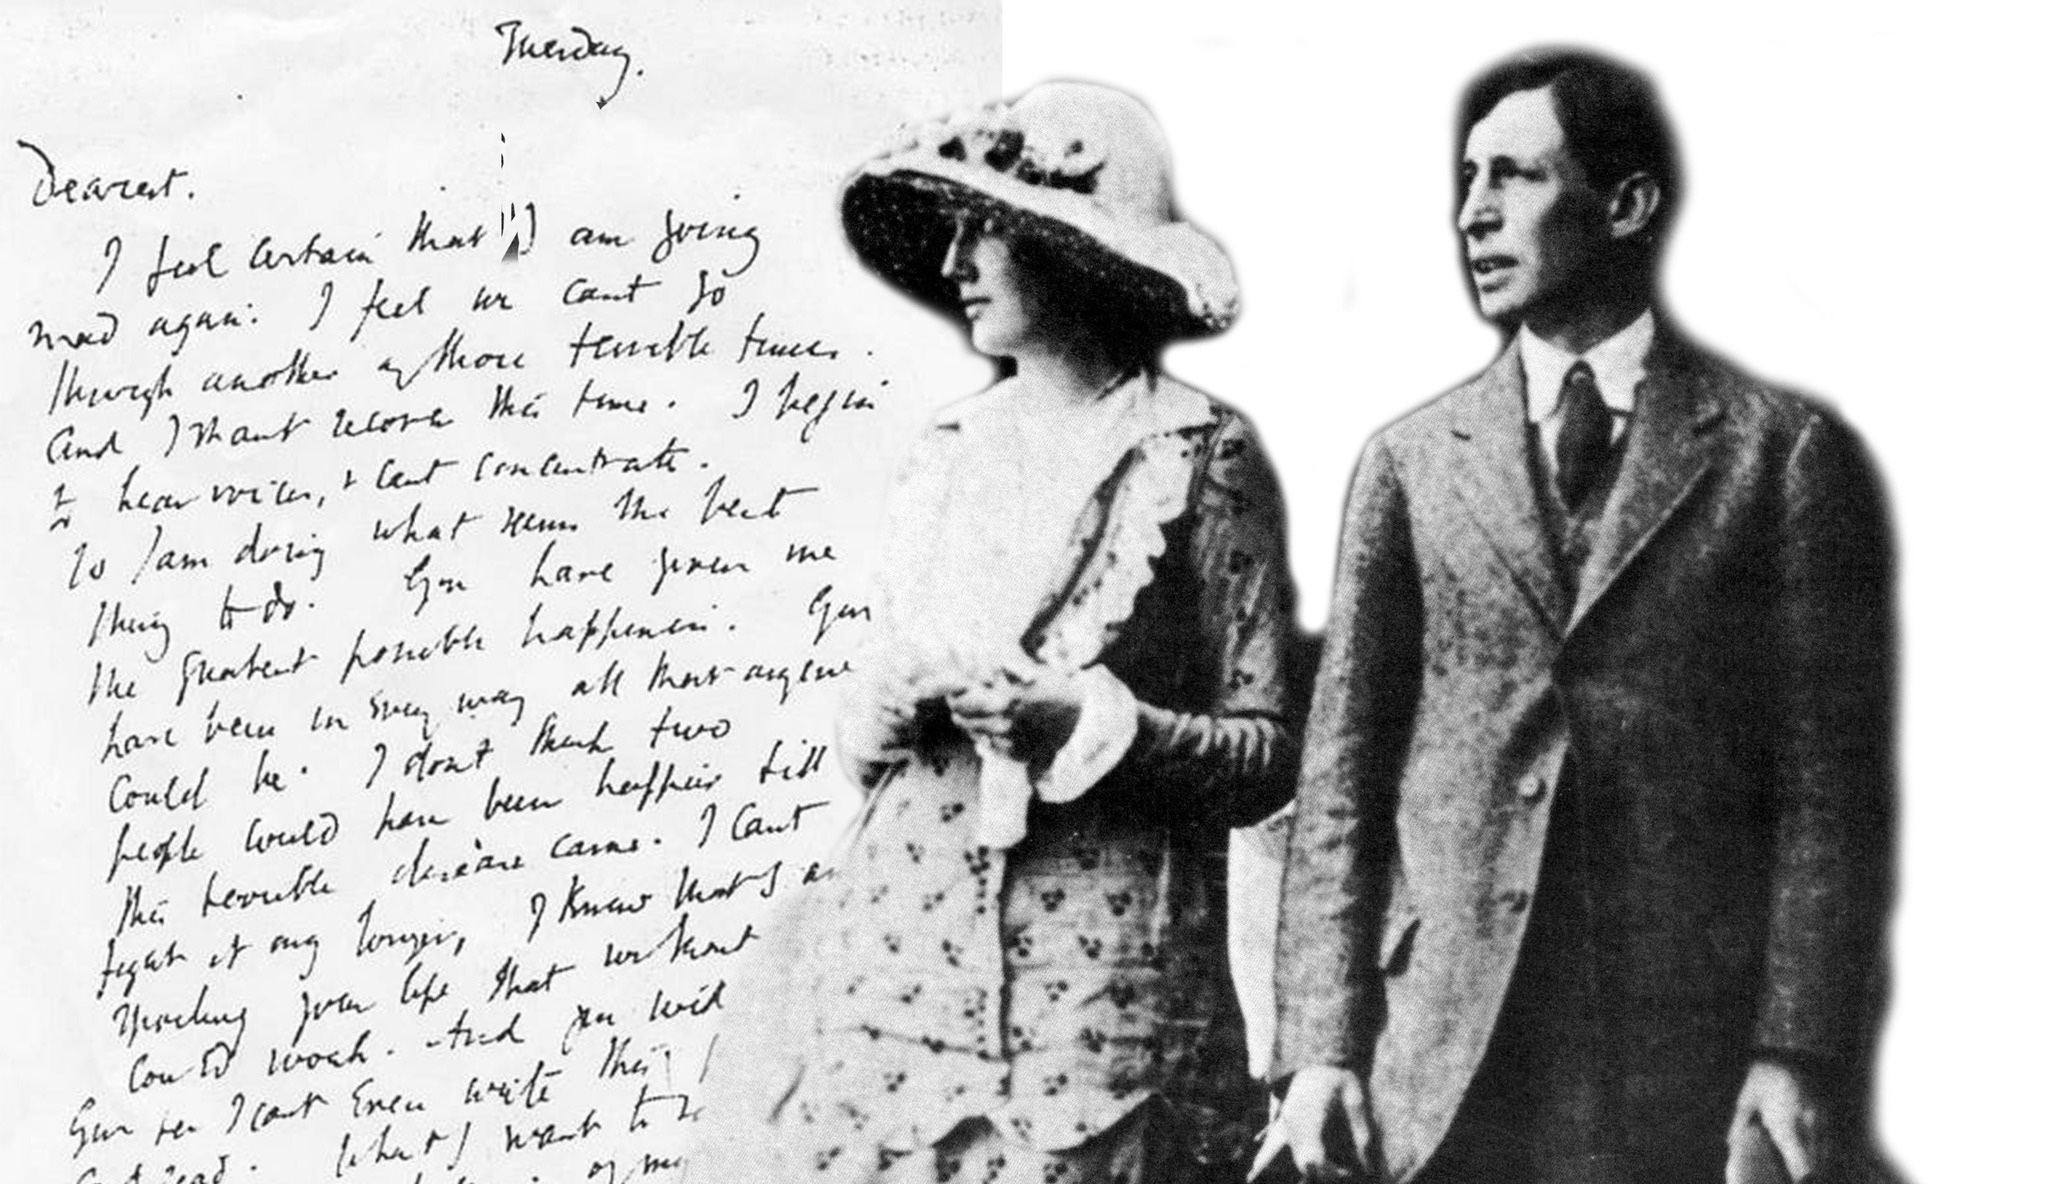 Tuesday.
Dearest.
I feel certain that I am going
mad again: I feel we cant go
through another of those terrible times.
And I shant recover this time. I begin
to hear voices, & cant concentrate.
So I am doing what seems the best
thing to do. You have given me
the greatest possible happiness. You
have been in every way all that anyone
could be. I dont think two
people could have been happier till
this terrible disease came. I cant
fight it any longer, I know that I am
spoiling your life that without
could work. And you will
You see I cant even write this
What I want to
of my